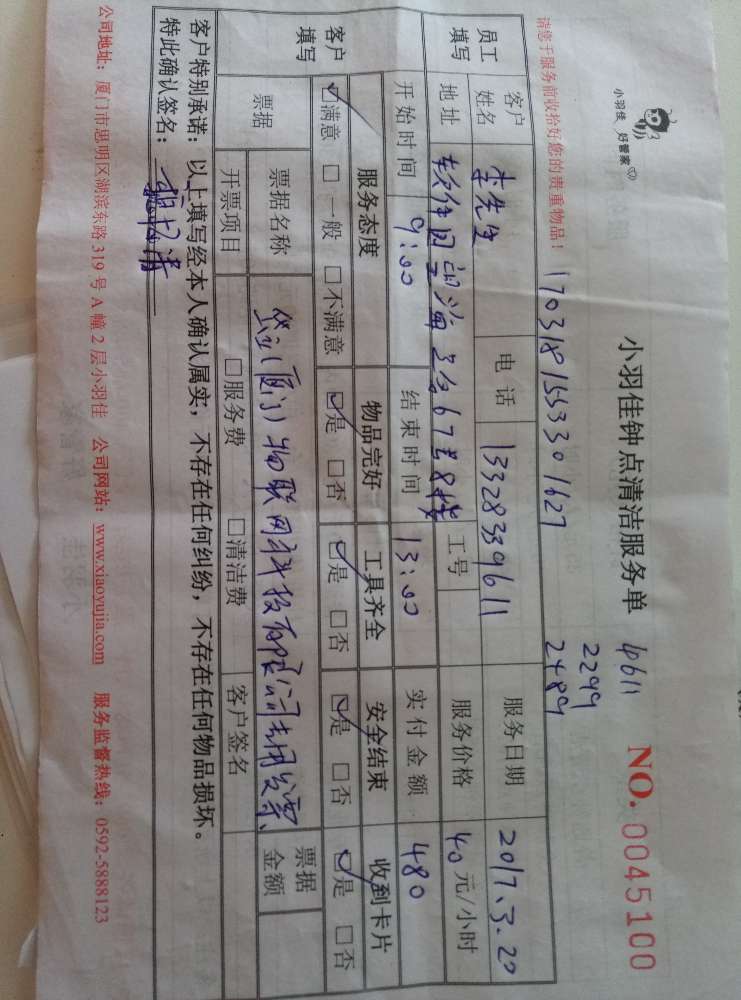 小羽佳 好管家
请您于服务前收拾好您的贵重物品！
170318155330 1627
小羽佳钟点清洁服务单
2299
2489
NO. 0045100
员工填写
客户姓名 李先生 电话 13328339611 服务日期 2017.3.20
地址 软件园 2 67号8楼 工号 服务价格 40元/小时
开始时间 9:00 结束时间 13:00 实付金额 480
客户填写
服务态度 物品完好 工具齐全 安全结束 收到卡片
☑满意 □一般 □不满意 ☑是 □否 ☑是 □否 ☑是 □否 ☑是 □否
票据 票据名称 (厦门)物联网科技有限公司 发票 票据金额
开票项目 □服务费 □清洁费 客户签名
客户特别承诺：以上填写经本人确认属实，不存在任何纠纷，不存在任何物品损坏。
特此确认签名：
公司地址：厦门市思明区湖滨东路319号A幢2层小羽佳 公司网站：www.xiaoyujia.com 服务监督热线：0592-5888123